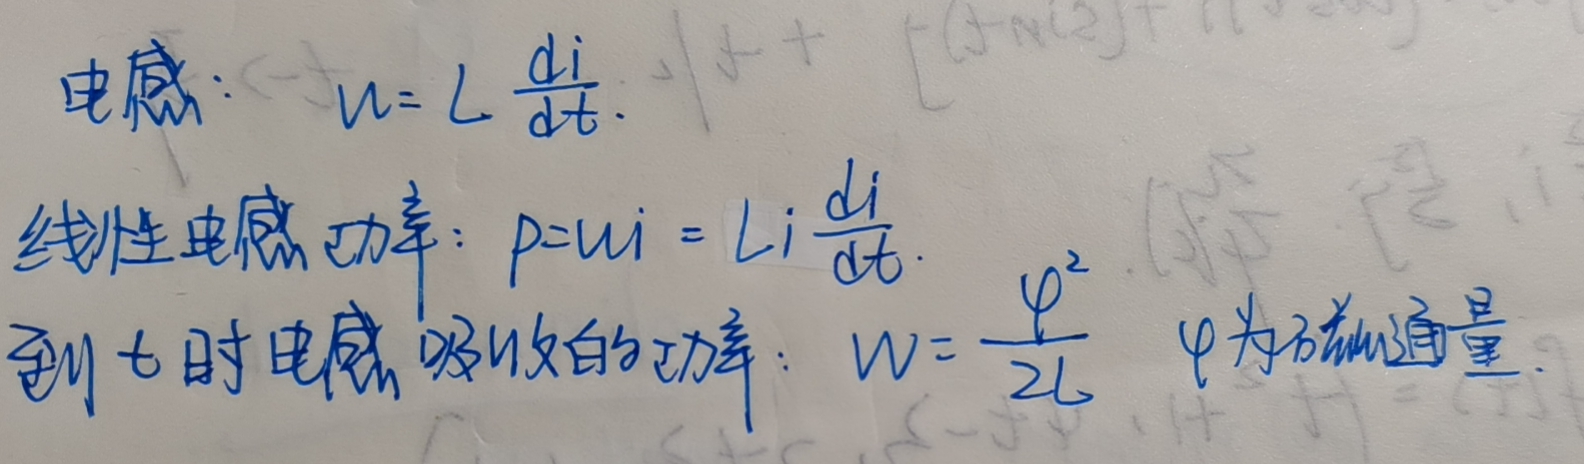 电感: u = L di/dt.
线性电感功率: p=ui = Li di/dt.
到 t 时电感吸收的功率: W = φ²/2L φ为磁通量.